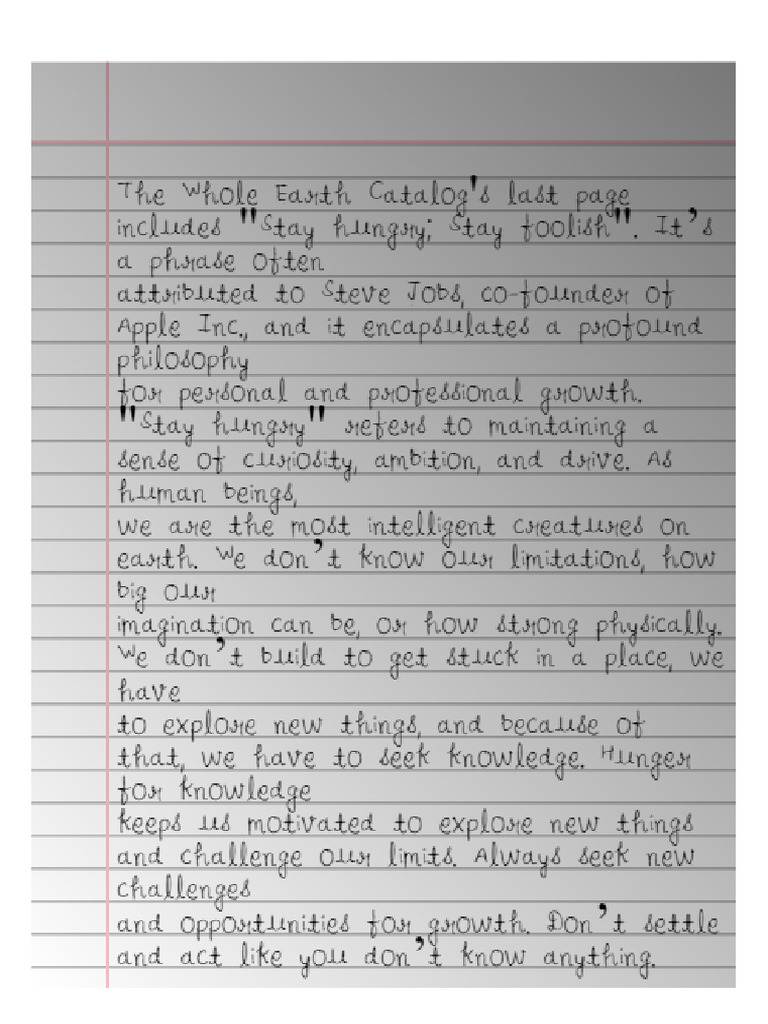 The Whole Earth Catalog's last page
includes "Stay hungry; Stay foolish". It's
a phrase often
attributed to Steve Jobs, co-founder of
Apple Inc., and it encapsulates a profound
philosophy
for personal and professional growth.
"Stay hungry" refers to maintaining a
sense of curiosity, ambition, and drive. As
human beings,
we are the most intelligent creatures on
earth. We don't know our limitations, how
big our
imagination can be, or how strong physically.
We don't build to get stuck in a place, we
have
to explore new things, and because of
that, we have to seek knowledge. Hunger
for knowledge
keeps us motivated to explore new things
and challenge our limits. Always seek new
challenges
and opportunities for growth. Don't settle
and act like you don't know anything.